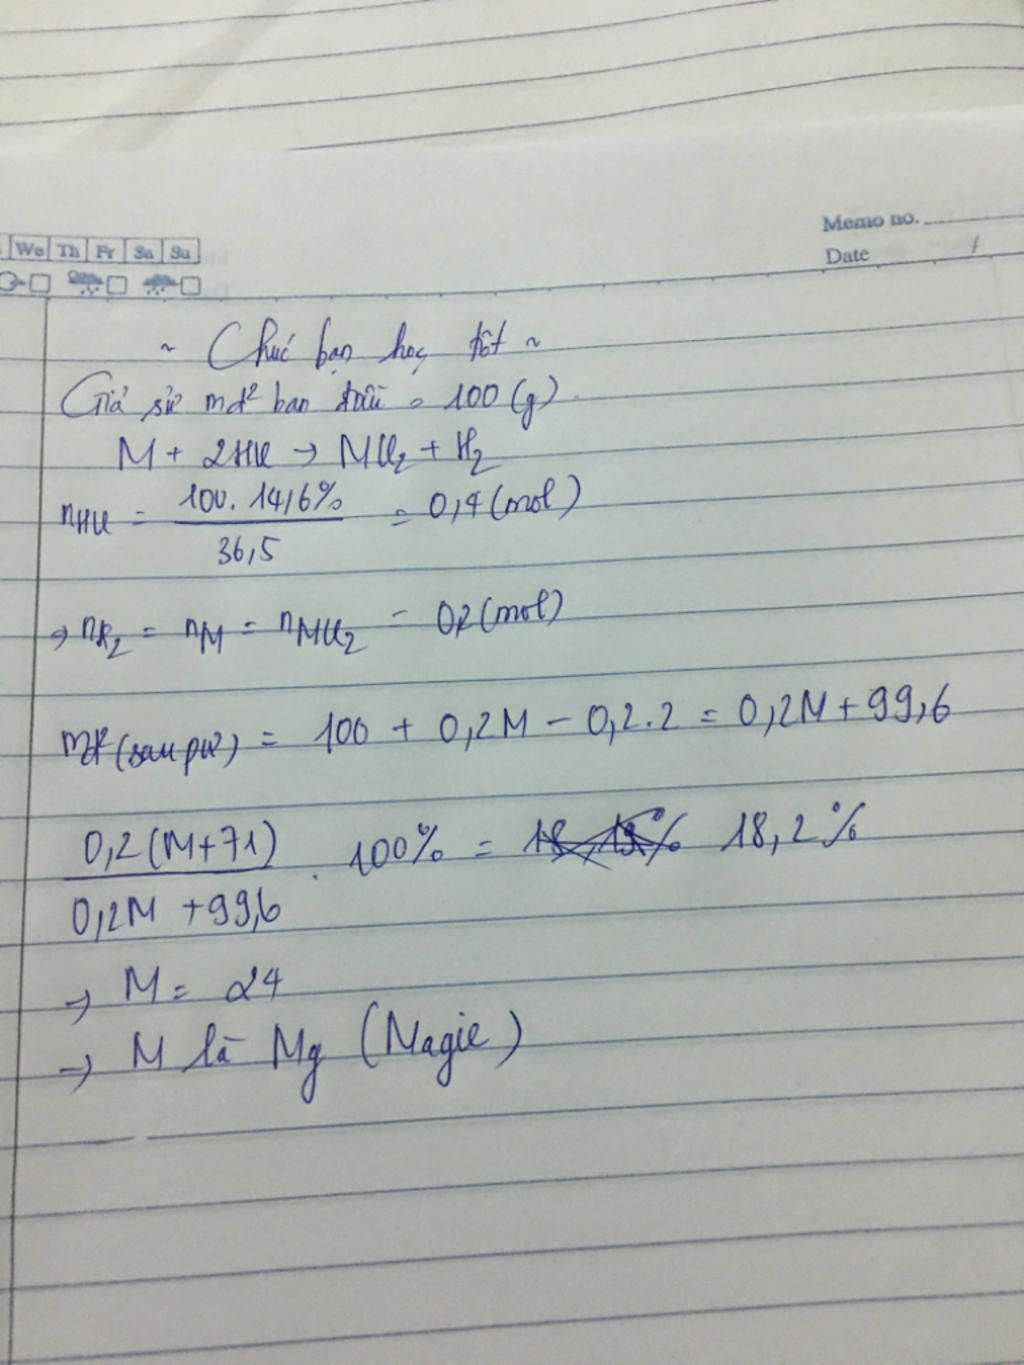 Memo no.
We Th Fr Sa Su
Date /
~ Chúc bạn học tốt ~
Giả sử mđ² ban đầu = 100 (g).
M + 2HCl → MCl₂ + H₂
nHCl = 100. 14,6% / 36,5 = 0,4 (mol)
→ nH₂ = nM = nMCl₂ = 0,2 (mol)
mđ² (sau pứ) = 100 + 0,2M - 0,2.2 = 0,2M + 99,6
0,2(M+71) / 0,2M + 99,6 . 100% = 18,2%
→ M = 24
→ M là Mg (Magie)